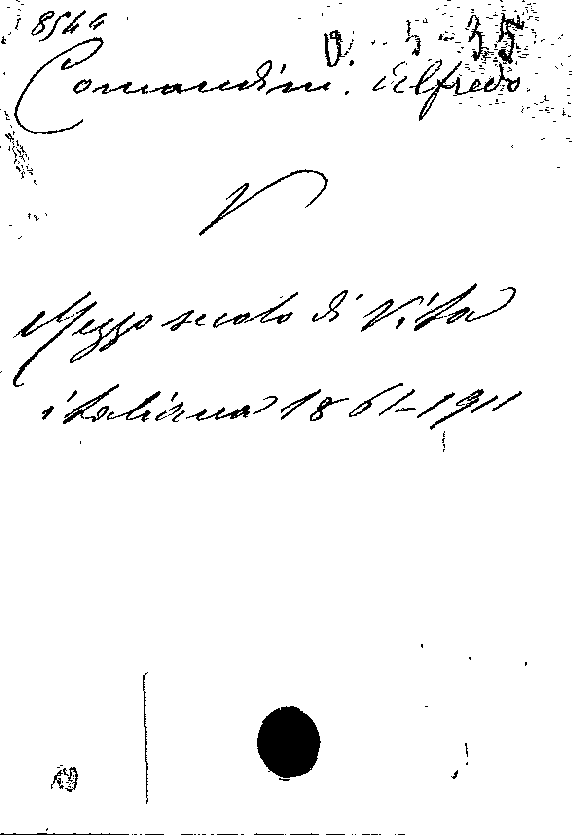 8544
5-35
Comandini. Alfredo
V
Mezzo secolo di Vita
italiana 1861-1911